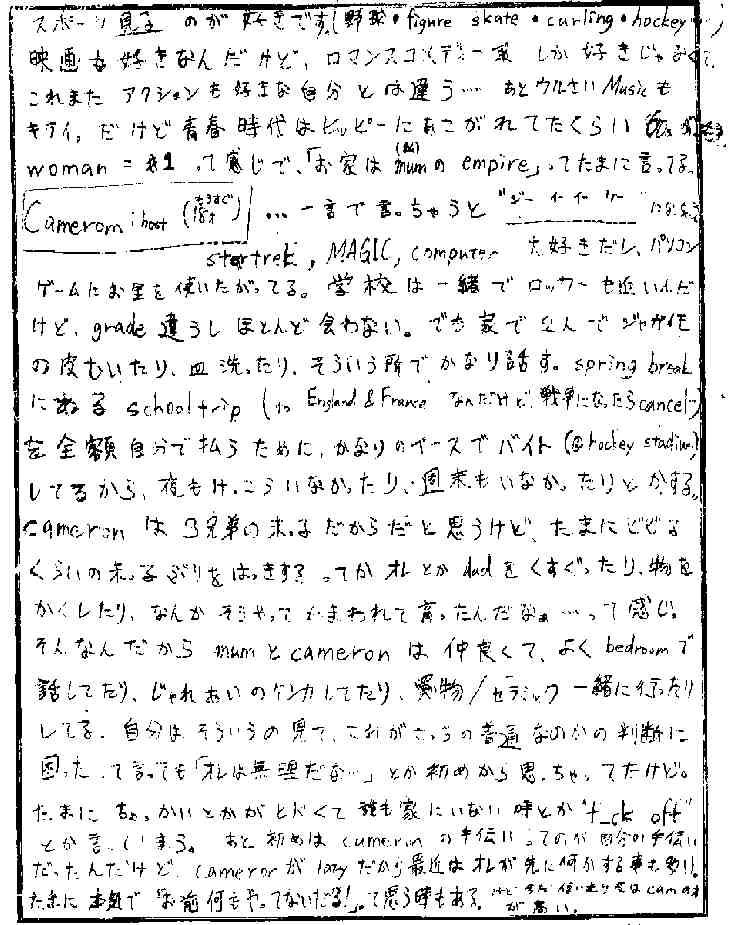 スポーツ見るのが好きです(野球・figure skate・curling・hockey…)
映画も好きなんだけど、ロマンスコメディー系しか好きじゃなくて、
これまたアクションも好きな自分とは違う… あとウルさいMusicも
キライ。だけど青春時代はヒッピーにあこがれてたくらい
woman = #1 って感じで、「お家は mumの empire」ってたまに言ってる。
Cameron: host (もうすぐ) … 一言で言っちゃうと
startrek, MAGIC, computer 大好きだし、パソコン
ゲームにお金を使いたがってる。学校は一緒でロッカーも近いんだ
けど、grade 違うしほとんど会わない。でも家で2人でジャガイモ
の皮むいたり、皿洗ったり、そういう所でかなり話す。spring break
にある school trip (to England & France なんだけど、戦争になったらcancel)
を全額自分で払うために、かなりのペースでバイト(@hockey stadium)
してるから、夜もけっこういなかったり、週末もいなかったりとかする。
cameron は3兄弟の末っ子だからだと思うけど、たまにどどる
くらいの末っ子ぶりをはっきする ってかオレとか dad をくすぐったり、物を
かくしたり、なんかそうやってかまわれて育ったんだなぁ…って感じ。
そんなんだから mum と cameron は仲良くて、よく bedroom で
話してたり、じゃれあいのケンカしてたり、買物/セラミック一緒に行ったり
してる。自分はそういうの見て、これがこっちの普通なのかの判断に
困った って言っても「オレは無理だな…」とか初めから思っちゃってたけど。
たまにちょっかいとかがヒドくて 誰も家にいない時とか "f_ck off"
とか言っています。あと初めは cameron の手伝いってのが自分の手伝い
だったんだけど、cameron が lazy だから最近はオレが先に何かする事も多い。
たまに本気で「お前何もやってないだろ!」って思う時もある。
が高い。